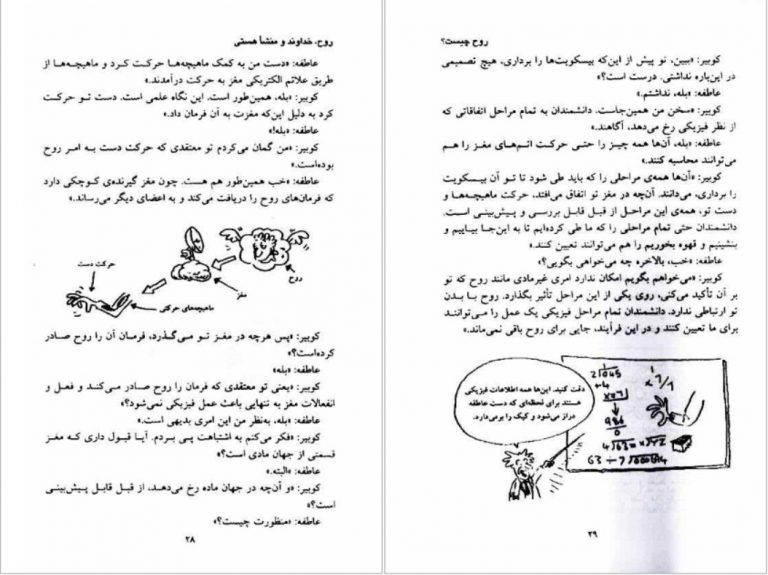 روح، خداوند و منشأ هستی
عاطفه: «دست من به کمک ماهیچه‌ها حرکت کرد و ماهیچه‌ها از
طریق علائم الکتریکی مغز به حرکت درآمدند.»
کوبیر: «بله، همین‌طور است. این نگاه علمی است. دست تو حرکت
کرد به دلیل این‌که مغزت به آن فرمان داد.»
عاطفه: «بله!»
کوبیر: «من گمان می‌کردم تو معتقدی که حرکت دست به امر روح
بوده‌است.»
عاطفه: «خب همین‌طور هم هست. چون مغز گیرنده‌ی کوچکی دارد
که فرمان‌های روح را دریافت می‌کند و به اعضای دیگر می‌رساند.»
روح
مغز
حرکت دست
ماهیچه‌های حرکتی
کوبیر: «پس هرچه در مغز تو می‌گذرد، فرمان آن را روح صادر
کرده‌است؟»
عاطفه: «بله»
کوبیر: «یعنی تو معتقدی که فرمان را روح صادر می‌کند و فعل و
انفعالات مغز به تنهایی باعث عمل فیزیکی نمی‌شود؟»
عاطفه: «بله، به‌نظر من این امری بدیهی است.»
کوبیر: «فکر می‌کنم به اشتباهت پی بردم. آیا قبول داری که مغز
قسمتی از جهان مادی است؟»
عاطفه: «البته.»
کوبیر: «و آن‌چه در جهان ماده رخ می‌دهد، از قبل قابل پیش‌بینی
است؟»
عاطفه: «منظورت چیست؟»
۲۸
روح چیست؟
کوبیر: «ببین، تو پیش از این‌که بیسکویت‌ها را برداری، هیچ تصمیمی
در این‌باره نداشتی. درست است؟»
عاطفه: «بله، نداشتم.»
کوبیر: «سخن من همین‌جاست. دانشمندان به تمام مراحل اتفاقاتی که
از نظر فیزیکی رخ می‌دهد، آگاهند.»
عاطفه: «بله، آن‌ها همه چیز را حتی حرکت اتم‌های مغز را هم
می‌توانند محاسبه کنند.»
کوبیر: «آن‌ها همه‌ی مراحلی را که باید طی شود تا تو آن بیسکویت
را برداری، می‌دانند. آن‌چه در مغز تو اتفاق می‌افتد، حرکت ماهیچه‌ها و
دست تو، همه‌ی این مراحل از قبل قابل بررسی و پیش‌بینی است.
دانشمندان حتی تمام مراحلی را که ما طی کرده‌ایم تا به این‌جا بیاییم و
بنشینیم و قهوه بخوریم را هم می‌توانند تعیین کنند.»
عاطفه: «خب، بالاخره چه می‌خواهی بگویی؟»
کوبیر: «می‌خواهم بگویم امکان ندارد امری غیرمادی مانند روح که تو
بر آن تأکید می‌کنی، روی یکی از این مراحل تأثیر بگذارد. روح با بدن
تو ارتباطی ندارد. دانشمندان تمام مراحل فیزیکی یک عمل را می‌توانند
برای ما تعیین کنند و در این فرآیند، جایی برای روح باقی نمی‌ماند.»
دقت کنید. این‌ها همه اطلاعات فیزیکی
هستند برای لحظه‌ای که دست عاطفه
دراز می‌شود و کیک را برمی‌دارد.
۲۹